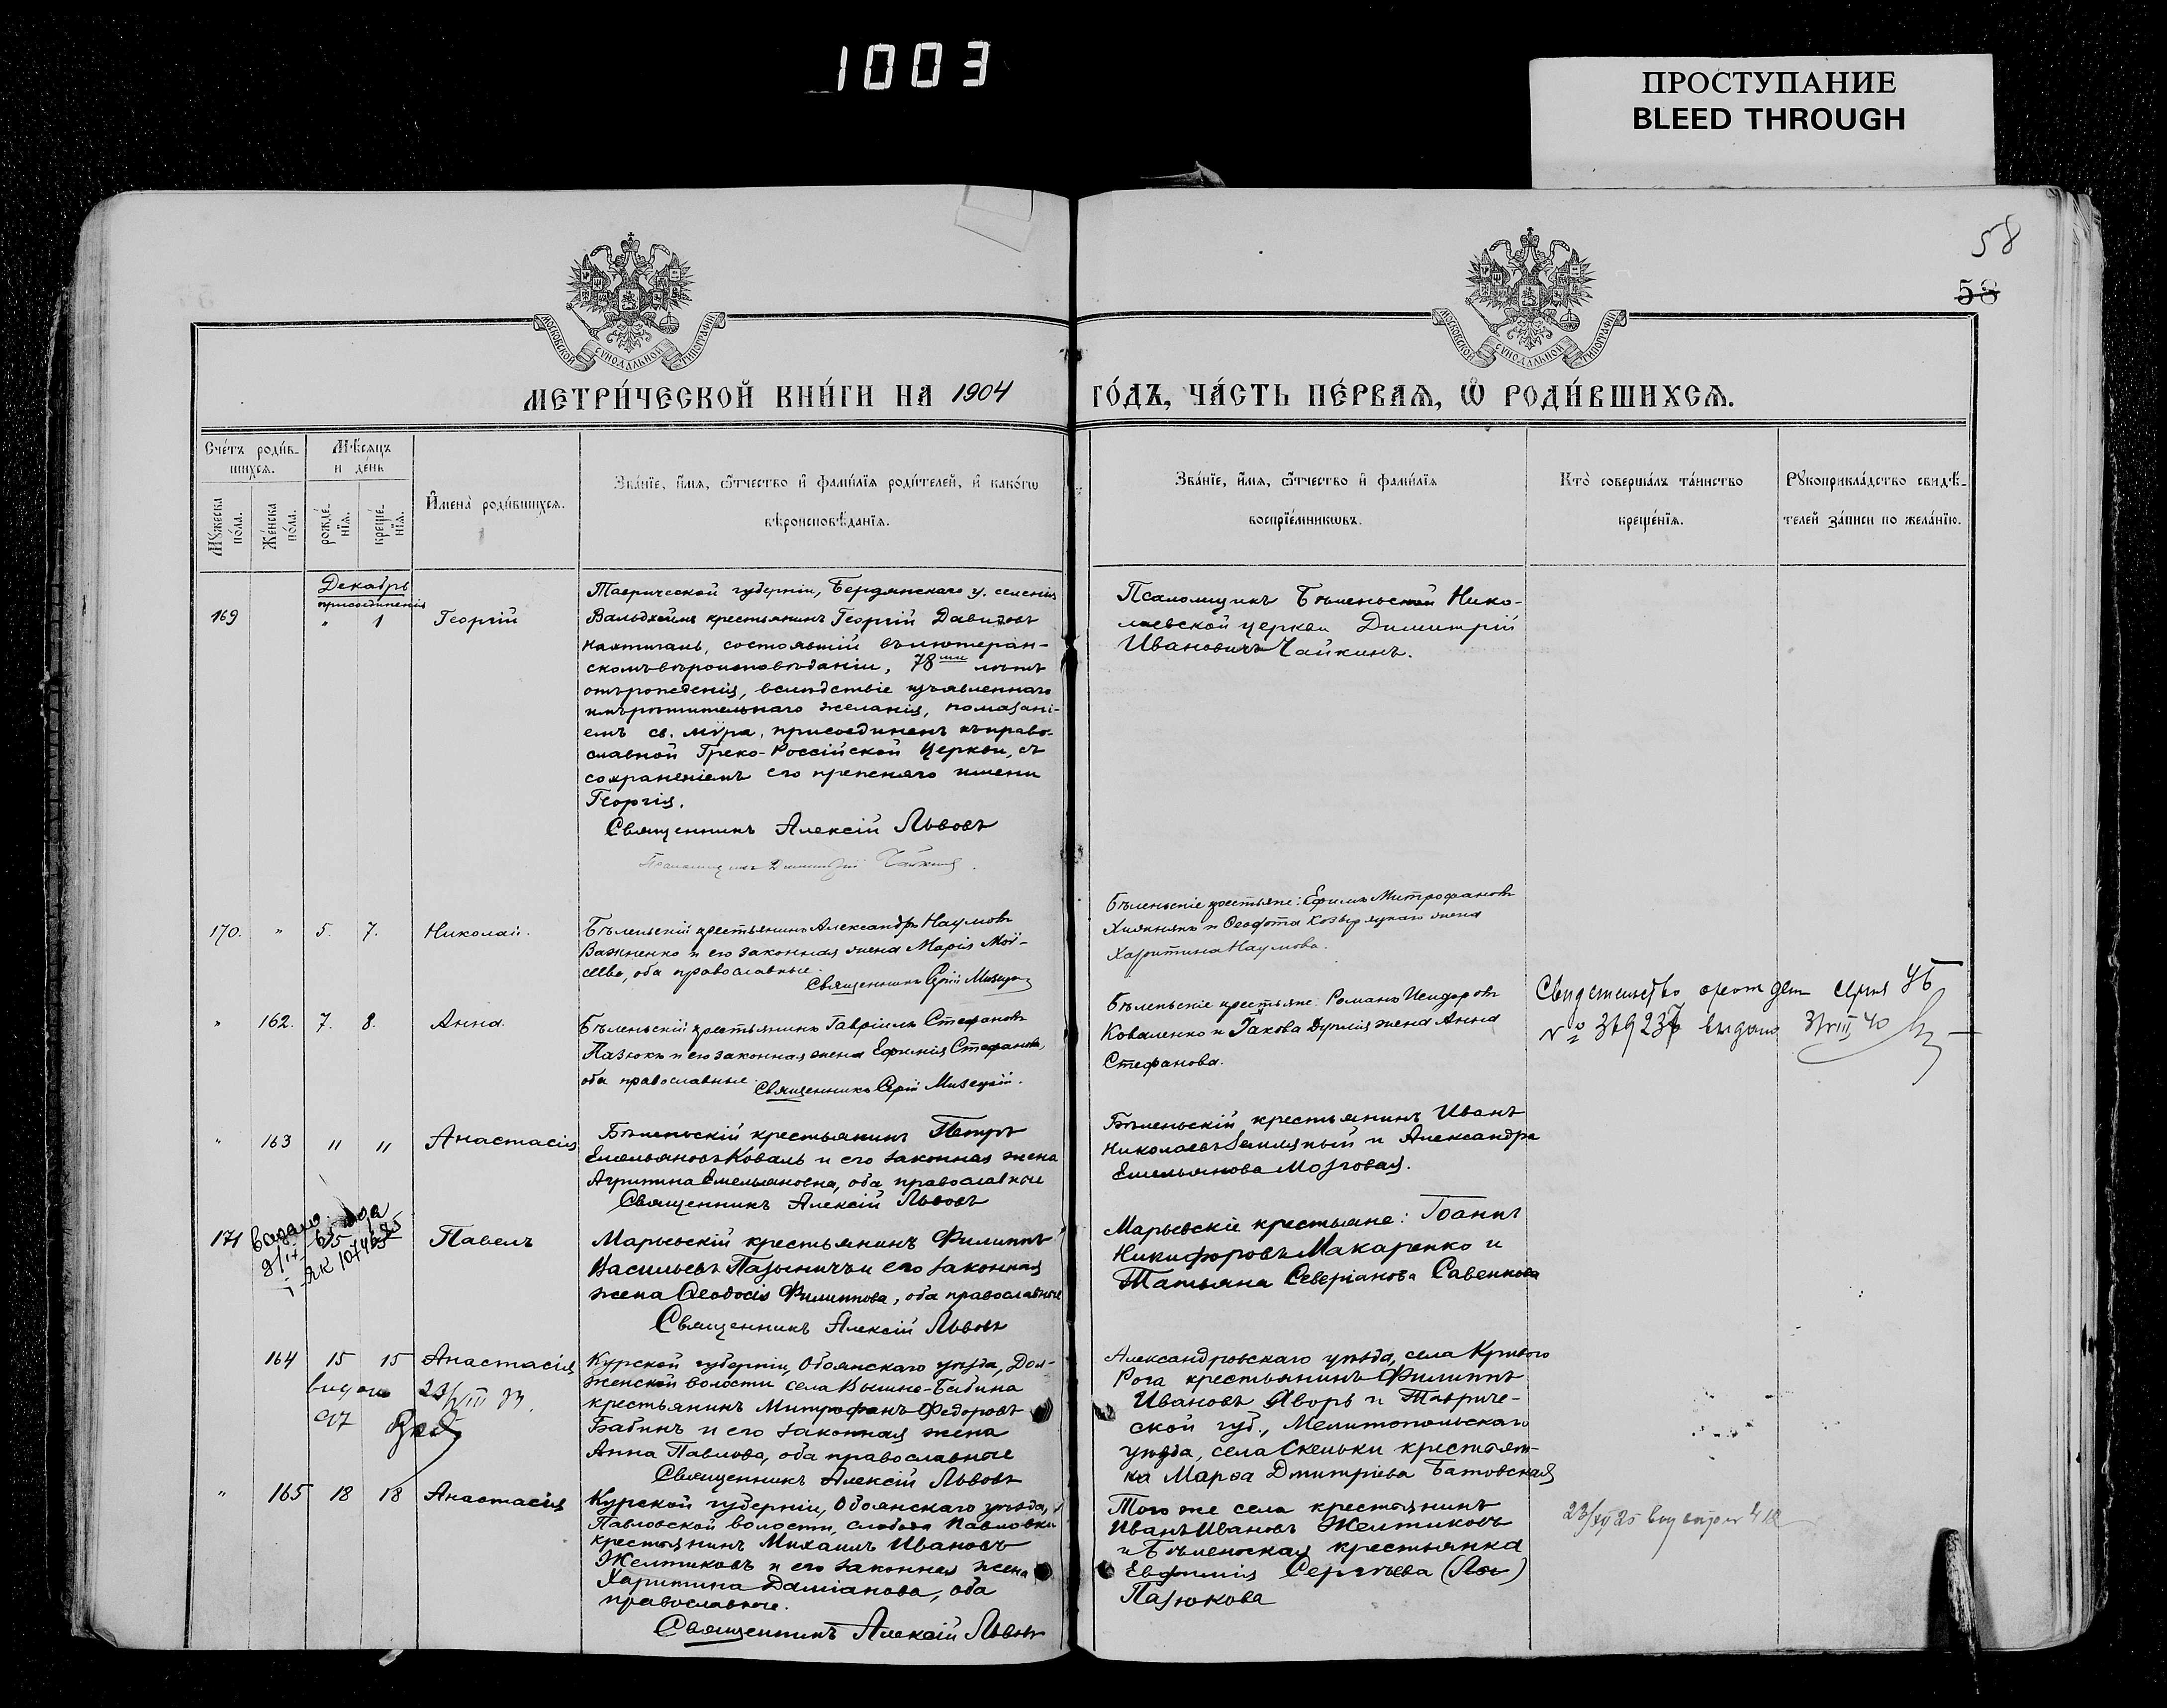 1003
ПРОСТУПАНИЕ
BLEED THROUGH
58
58
МОСКОВСКОЙ СѴНОДАЛЬНОЙ ТИПОГРАФІИ
МОСКОВСКОЙ СѴНОДАЛЬНОЙ ТИПОГРАФІИ
МЕТРИ́ЧЕСКОЙ КНИ́ГИ НА 1904 ГО́ДЪ, ЧА́СТЬ ПЕ́РВАѦ, Ѡ РОДИ́ВШИХСѦ.
Сче́тъ роди́в-
шихсѧ.
Мꙋ́жеска по́ла.
Же́нска по́ла.
Мѣ́сѧцъ
и де́нь
рожде́-
нїѧ.
креще́-
нїѧ.
И҆мена̀ роди́вшихсѧ.
Зва́нїе, и҆́мѧ, ѻ҆́тчество и҆ фами́лїѧ роди́телей, и҆ како́гѡ
вѣроисповѣ́данїѧ.
Зва́нїе, и҆́мѧ, ѻ҆́тчество и҆ фами́лїѧ
воспрїе́мникѡвъ.
Кто̀ соверша́лъ та́инство
креще́нїѧ.
Рꙋкоприкла́дство свидѣ́-
телей за́писи по жела́нїю.
Декабрь
присоединенія
169 " 1 Георгій
Таврической губерніи, Бердянскаго у. селенія
Вальдхеймъ крестьянинъ Георгій Давидовъ
состоявшій въ лютеран-
скомъ вѣроисповѣданіи, 78ми лѣтъ
отъ рожденія, вслѣдствіе изъявленнаго
имъ рѣшительнаго желанія, помазані-
емъ св. мѵра, присоединенъ къ право-
славной Греко-Россійской Церкви, съ
сохраненіемъ его прежняго имени
Георгія.
Священникъ Алексій Львовъ
Псаломщикъ Димитрій Чайкинъ.
Псаломщикъ Бѣленьской Нико-
лаевской церкви Димитрій
Ивановичъ Чайкинъ.
170. " 5. 7. Николай.
Бѣленьскій крестьянинъ Александръ Наумовъ
Важненко и его законная жена Марія Мої-
сѣева, оба православные.
Священникъ
Бѣленьскіе крестьяне: Ефимъ Митрофановъ
Хижнякъ и Ѳеодота жена
Харитина Наумова.
" 162. 7. 8. Анна.
Бѣленьскій крестьянинъ Гавріилъ Стефановъ
Пазюкъ и его законная жена Ефимія Стефанова,
оба православные.
Священникъ
Бѣленьскіе крестьяне: Романъ Исидоровъ
Коваленко и Іакова жена Анна
Стефанова.
Свидетельство серия УБ
№ выдано 31/VIII 40
" 163 " " Анастасія
Бѣленьскій крестьянинъ Петръ
Емельяновъ Коваль и его законная жена
Агрипина Емельяновна, оба православные
Священникъ Алексій Львовъ
Бѣленьскій крестьянинъ Иванъ
Николаевъ Земляный и Александра
Емельянова Мозговая.
171 Павелъ
выдано
ЯК
Марьевскій крестьянинъ Филиппъ
Васильевъ Пазыничъ и его законная
жена Ѳеодосія Филиппова, оба православные
Священникъ Алексій Львовъ
Марьевскіе крестьяне: Іоаннъ
Никифоровъ Макаренко и
Татьяна Северіанова Савенкова
164 15 15 Анастасія
выдано 23/VIII 33.
Курской губерніи, Обоянскаго уѣзда, Дол-
женской волости села Вышне-Бабина
крестьянинъ Митрофанъ Федоровъ
Бабинъ и его законная жена
Анна Павлова, оба православные
Священникъ Алексій Львовъ
Александровскаго уѣзда, села Кривого
Рога крестьянинъ Филиппъ
Ивановъ Яворь и Тавриче-
ской губ., Мелитопольскаго
уѣзда, села Скельки крестьян-
ка Марѳа Дмитріева Батовская
" 165 18 18 Анастасія
Курской губерніи, Обоянскаго уѣзда,
Павловской волости, слобода Павловки
крестьянинъ Михаилъ Ивановъ
Желтиковъ и его законная жена
Харитина Даміанова, оба
православные.
Священникъ Алексій Львовъ
Того же села крестьянинъ
Иванъ Ивановъ Желтиковъ
и Бѣленьская крестьянка
Евфимія Сергѣева
Пазюкова